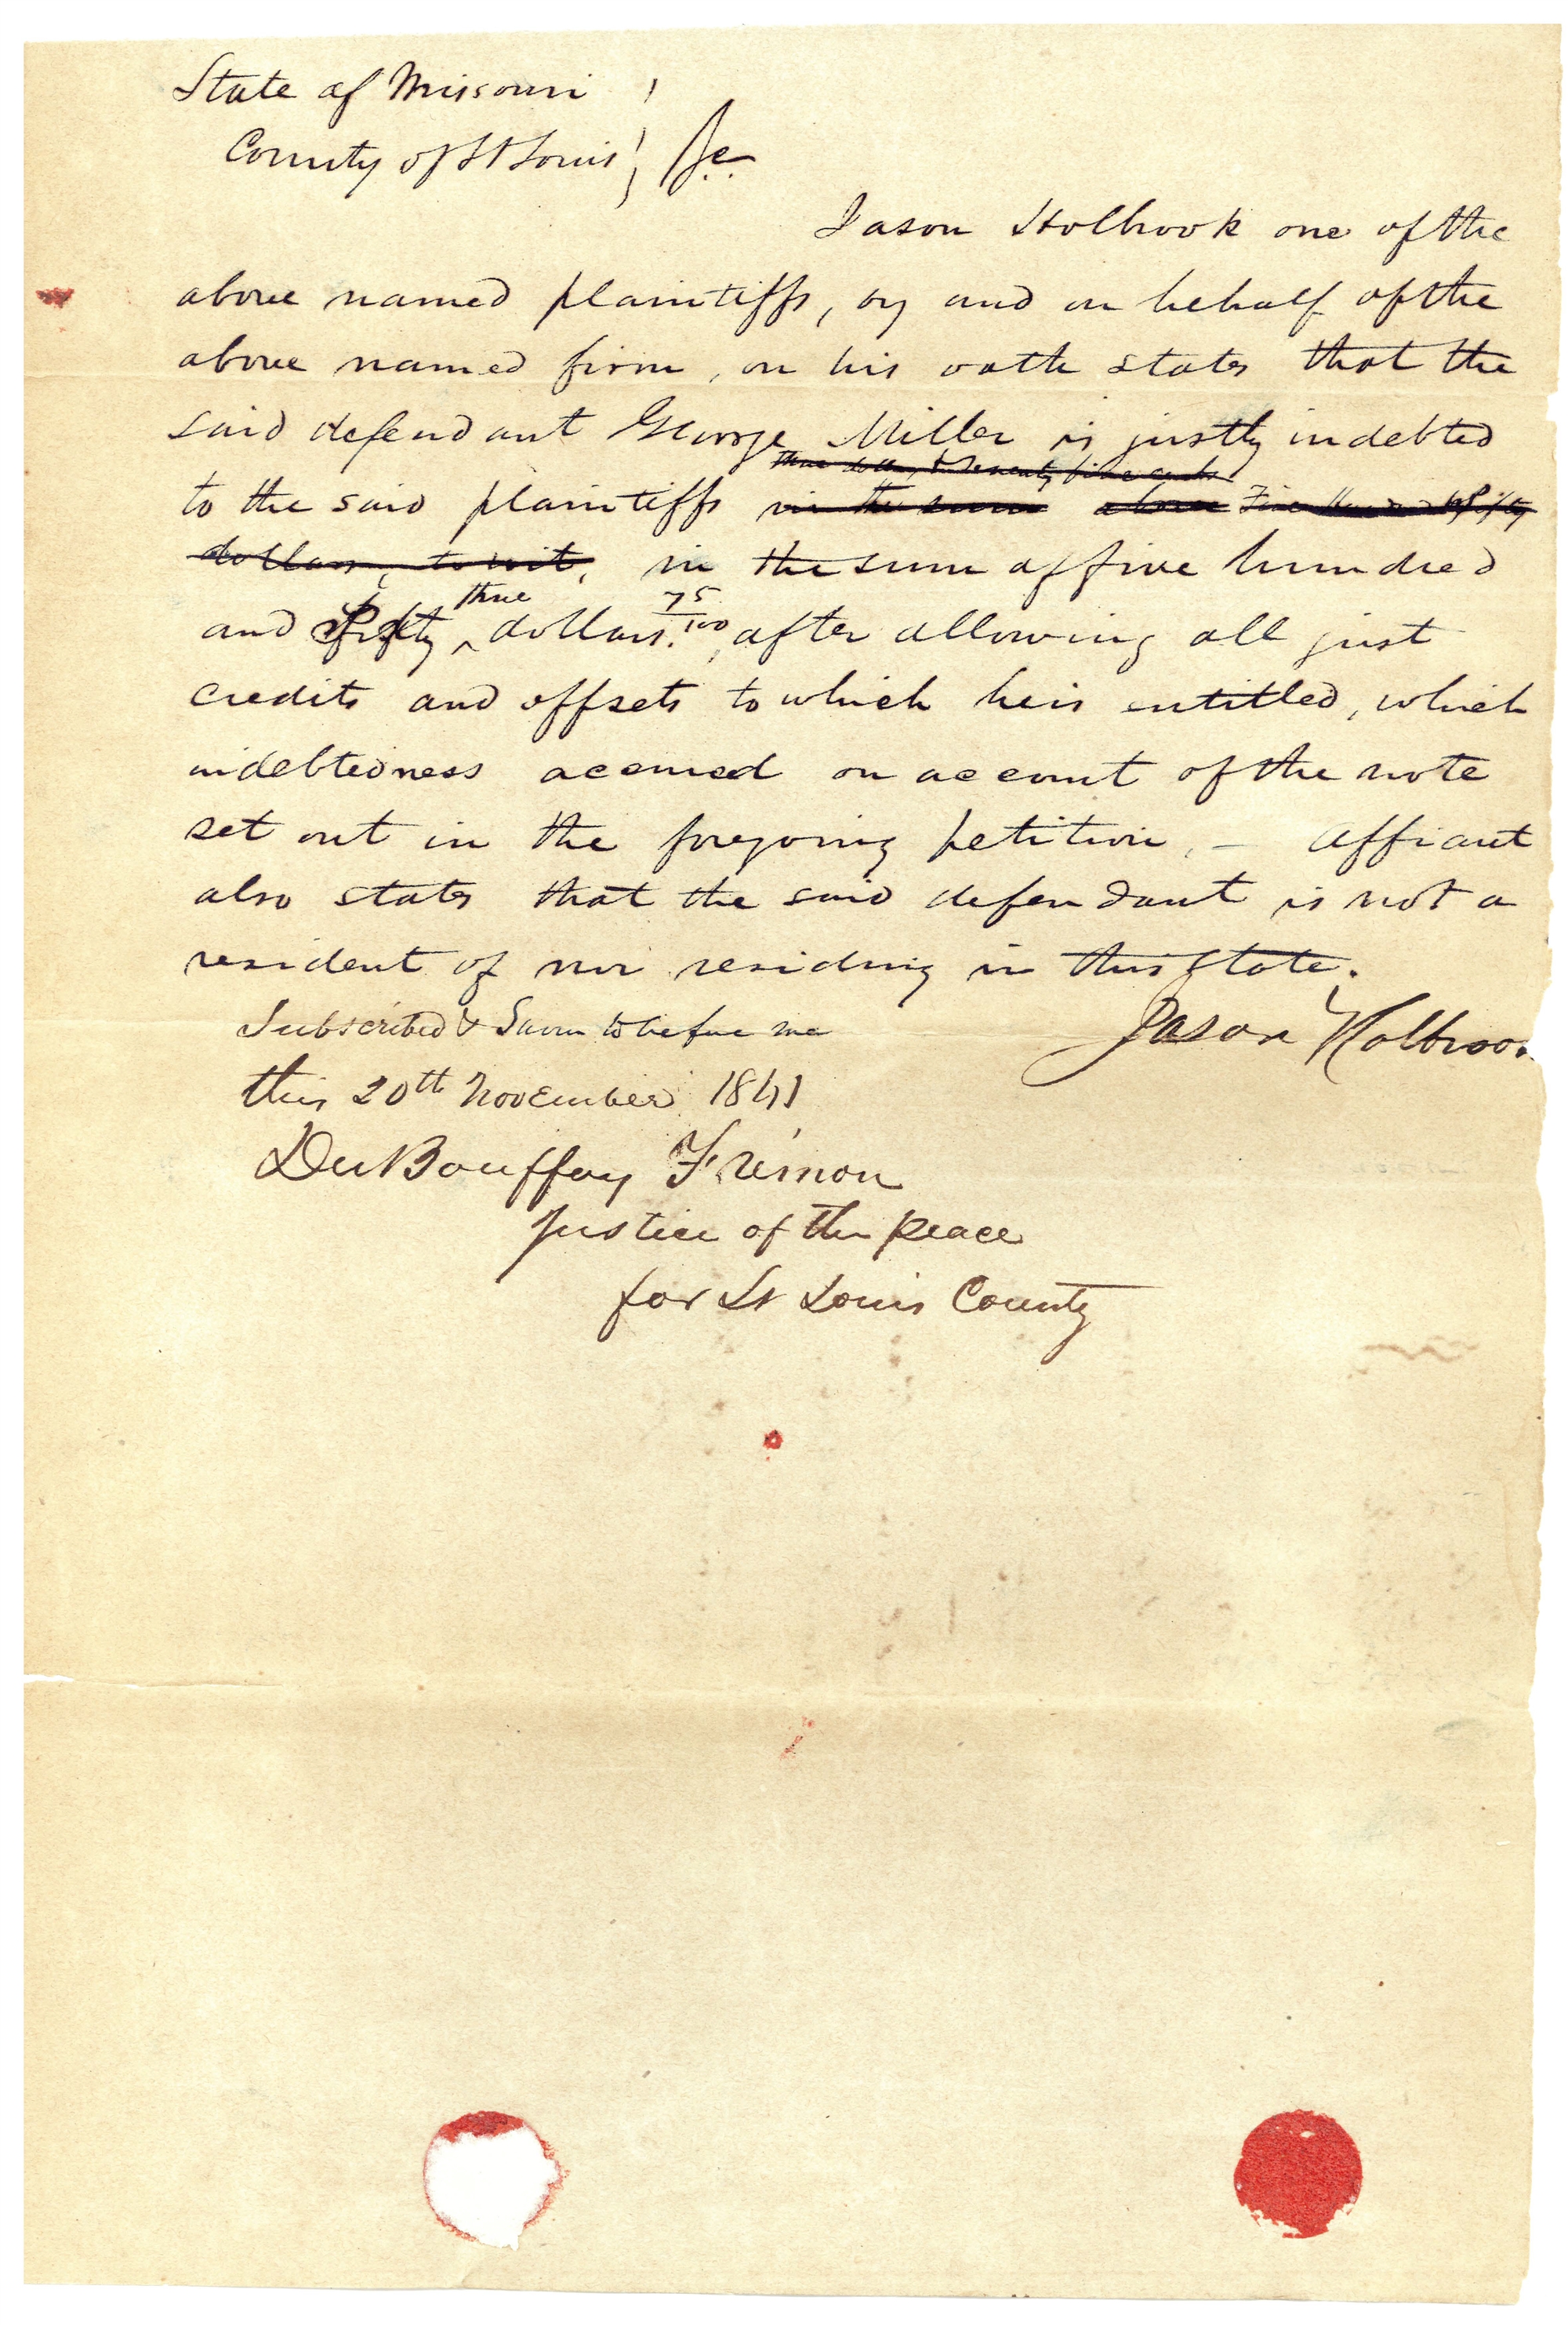 State of Missouri
County of St Louis } Sc.
Jason Holbrook one of the
above named plaintiffs, by and on behalf of the
above named firm, on his oath states that the
said defendant George Miller is justly indebted
three dollars & seventy five cents
to the said plaintiffs in the sum above Five Hundred & fifty
dollars, to wit, in the sum of five hundred
and fifty ^ three dollars. 75/100, after allowing all just
credits and offsets to which he is entitled, which
indebtedness accrued on account of the note
set out in the foregoing petition, – Affiant
also states that the said defendant is not a
resident of nor residing in this State.
Subscribed & Sworn to before me
Jason Holbroo
this 20th November 1841
DuBouffay Frémon
Justice of the peace
for St Louis County